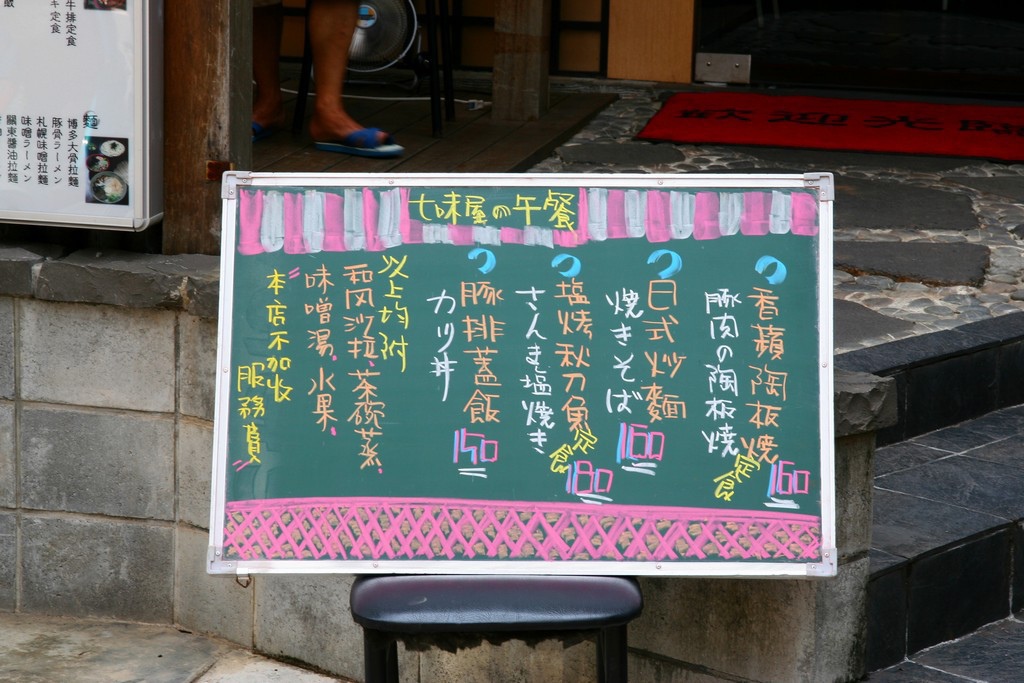 七味屋の午餐
香蘋陶板燒定食160
豚肉の陶板焼
日式炒麵160
焼きそば
塩烤秋刀魚定食180
さんま塩焼き
豚排蓋飯150
カツ丼
以上均附
和风沙拉、茶碗蒸、
味噌湯、水果、
"本店不加收
服務費"
牛排定食
キ定食
麵
博多大骨拉麵
豚骨ラーメン
札幌味噌拉麵
味噌ラーメン
關東醬油拉麵
歡迎光臨